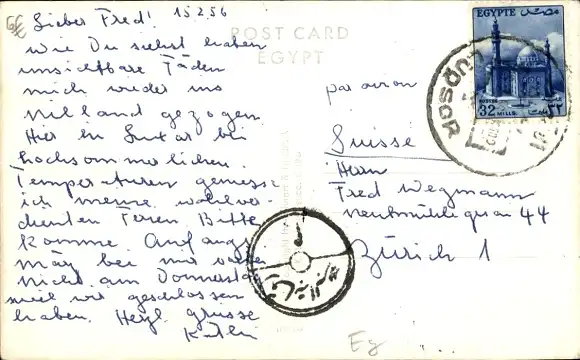 Lieber Fred! 15.2.56
wie Du siehst haben
unsichtbare Fäden
mich wieder ins
Nilland gezogen.
Hier in Luxor bei
hochsommerlichen
Temperaturen geniesse
ich meine wohlver-
dienten Ferien. Bitte
komme Anfangs
März bei mir
nicht am Donnerstag
weil wir geschlossen
haben. Herzl. Grüsse
POST CARD
EGYPT
par avion
Suisse
Herrn
Fred Wegmann
Neumühlequai 44
Zürich 1
EGYPTE مصر
POSTES
32 MILLS
٣٢
LUXOR
Eg